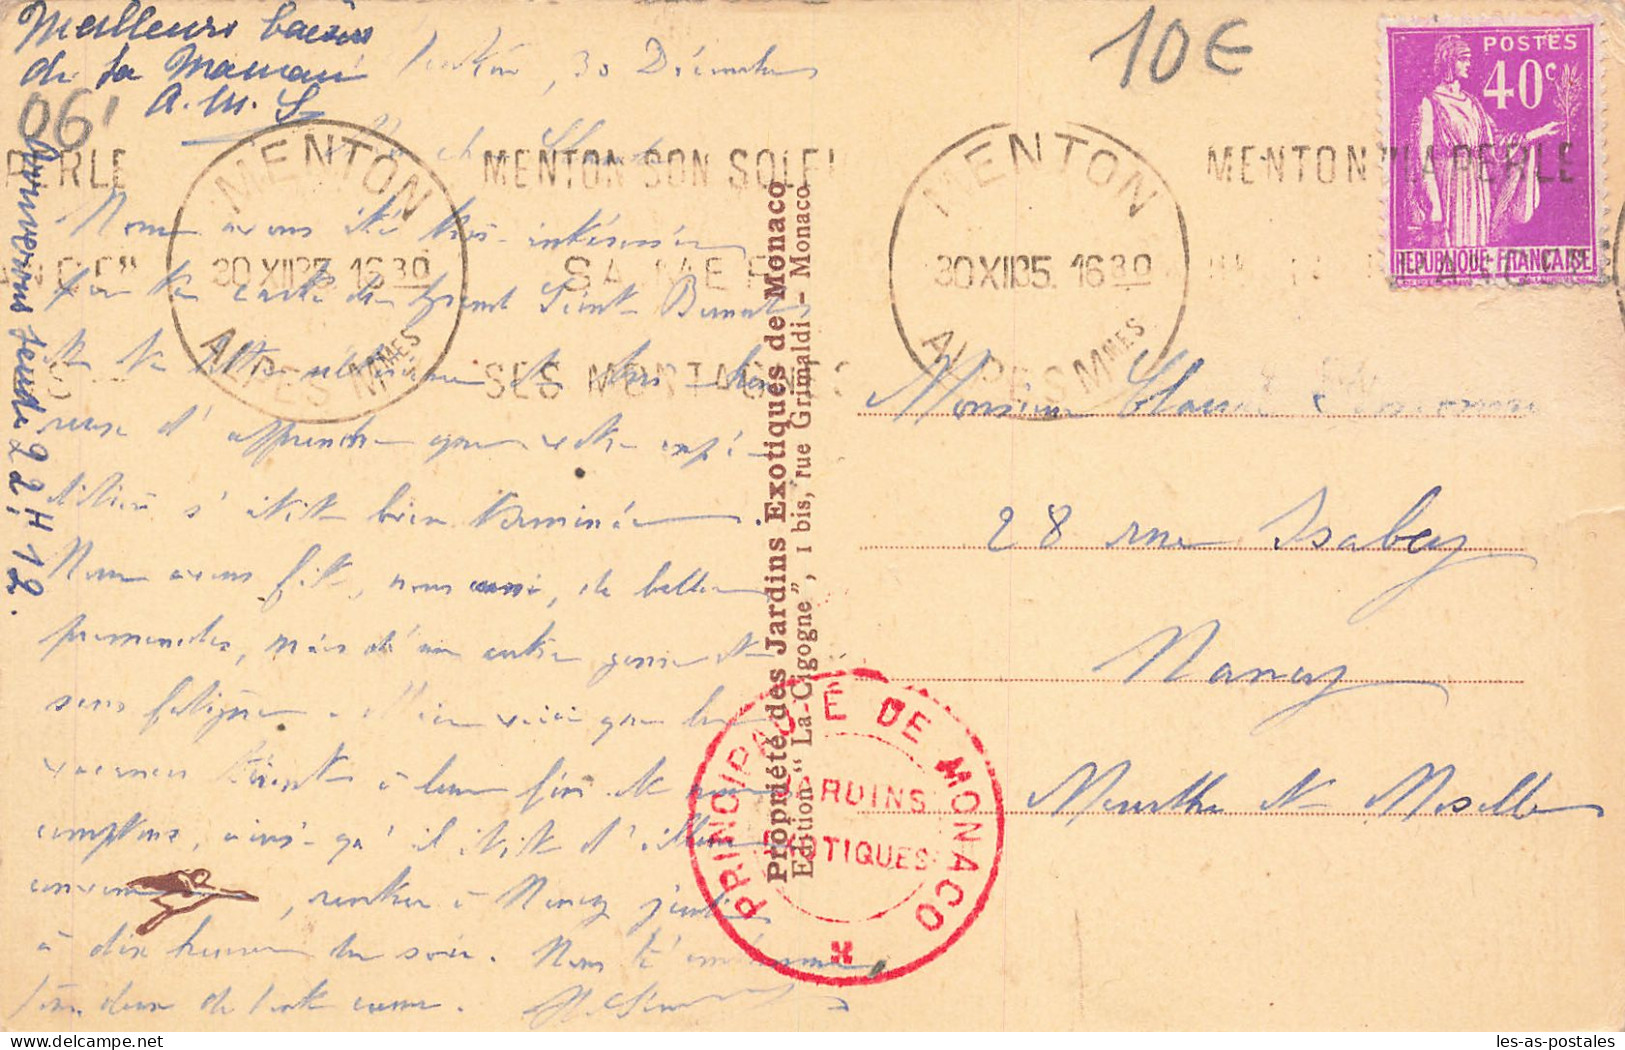 Meilleurs baisers
de ta Maman
A. M. S.
30 Décembre
10€
06'
POSTES
40c
REPUBLIQUE FRANÇAISE
PERLE
MENTON
30 XII 35. 16 30
ALPES MMES
MENTON SON SOLEI
SA MER
SES MONTAGNES
MENTON
30 XII 35. 16 30
ALPES MMES
MENTON "LA PERLE
Nous avons été très intéressés
par ta carte du Grand Saint Bernard
et ta lettre
reuse d'apprendre que votre expé-
dition s'était bien terminée.
Nous avons fait, nous aussi, de belles
promenades, mais d'un autre genre et
sans fatigue.
vacances tirent à leur fin et nous
comptons, ainsi qu'il était d'ailleurs
convenu, rentrer à Nancy jeudi
à dix heures du soir. Nous t'embrassons
de tout cœur.
Arriverons jeudi 2, 22 H 12.
Propriété des Jardins Exotiques de Monaco
Edition "La Cigogne", 1 bis, rue Grimaldi - Monaco
PRINCIPAUTÉ DE MONACO
JARDINS
EXOTIQUES
Monsieur Claude
28 rue Isabey
Nancy
Meurthe et Moselle
les-as-postales